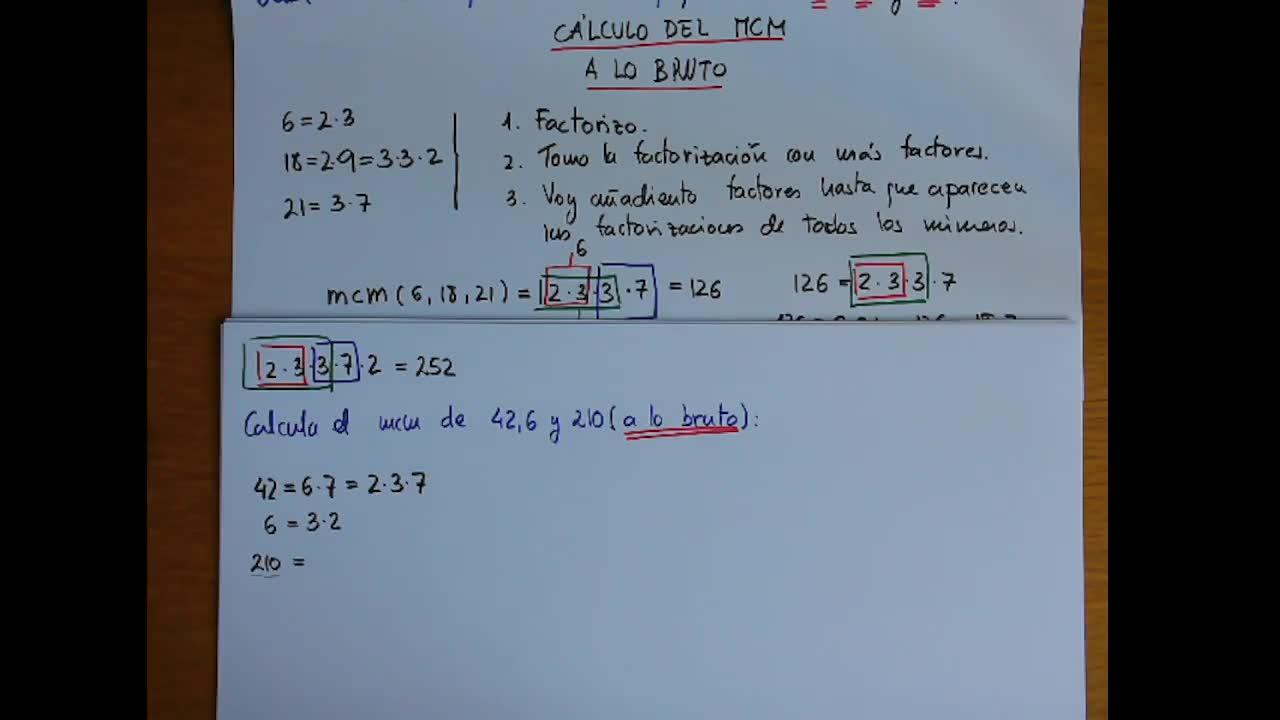 CÁLCULO DEL MCM
A LO BRUTO
6=2·3
18=2·9=3·3·2
21=3·7
1. Factorizo.
2. Tomo la factorización con más factores.
3. Voy añadiento factores hasta que aparecen
las factorizaciones de todos los números.
6
mcm(6,18,21)=2·3·3·7=126
126=2·3·3·7
2·3·3·7·2=252
Calcula el mcm de 42,6 y 210(a lo bruto):
42=6·7=2·3·7
6=3·2
210=